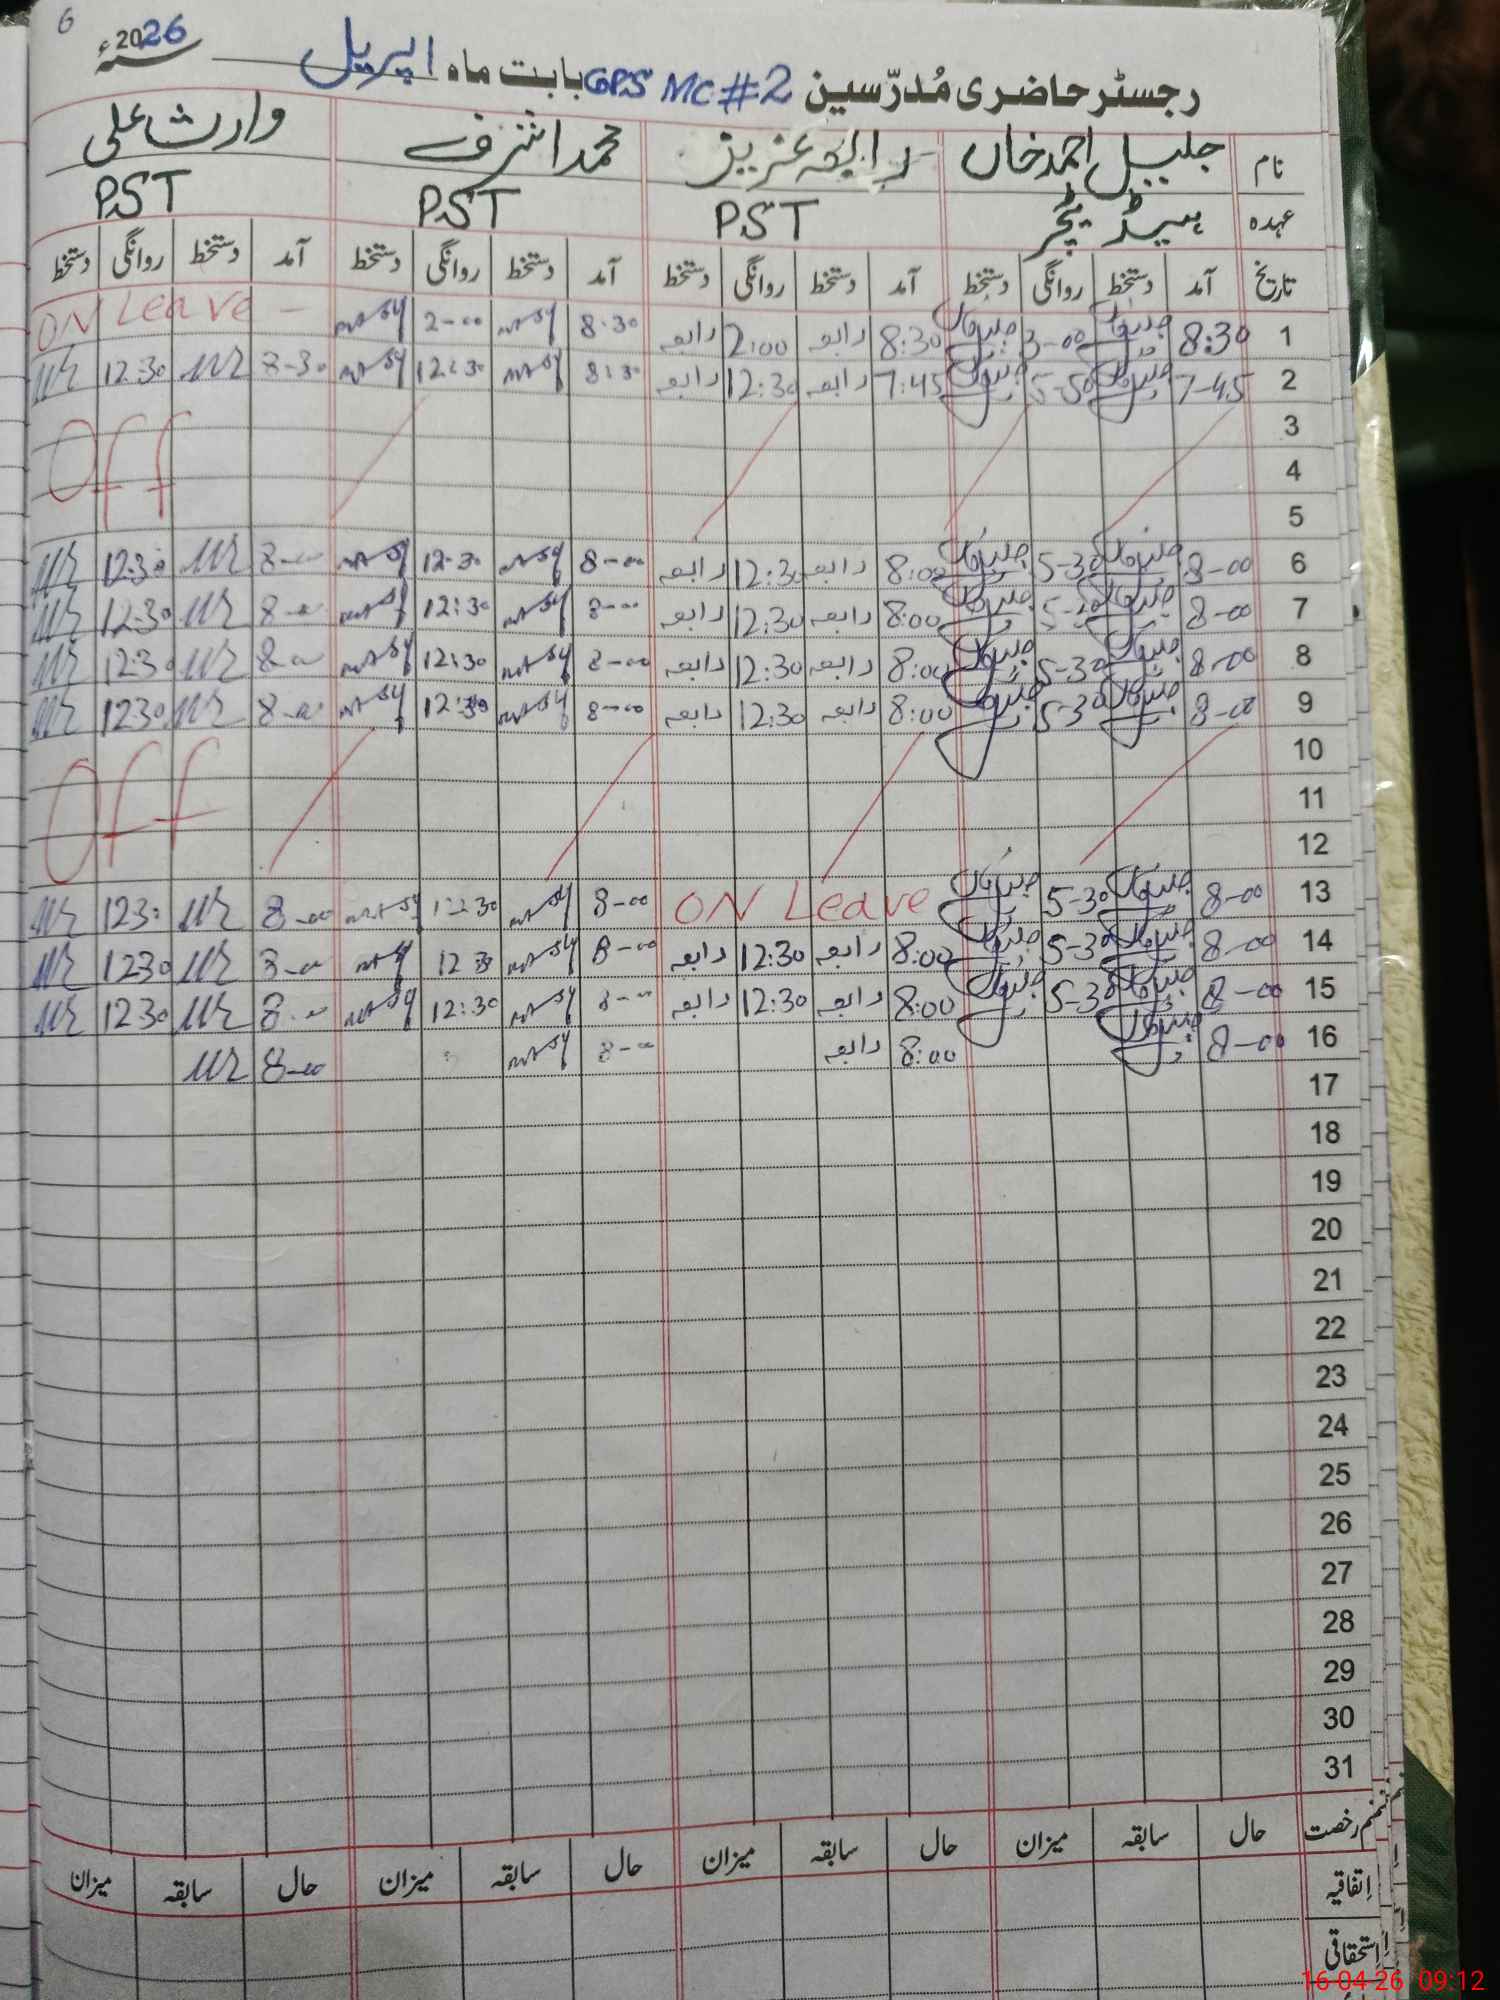 6
رجسٹر حاضری مُدرّسین GPS MC #2 بابت ماہ اپریل 2026ء سنہ
نام جلیل احمد خاں رابعہ عزیز محمد اشرف وارث علی
عہدہ ہیڈ ٹیچر PST PST PST
تاریخ آمد دستخط روانگی دستخط آمد دستخط روانگی دستخط آمد دستخط روانگی دستخط آمد دستخط روانگی دستخط
1 8:30 3-00 8:30 رابعہ 2:00 رابعہ 8:30 2-00 ON Leave -
2 7-45 5-50 7:45 رابعہ 12:30 رابعہ 8:30 12:30 8-30 12:30
3
4 Off
5
6 8-00 5-30 8:00 رابعہ 12:30 رابعہ 8-00 12-30 8-00 12:30
7 8-00 5-30 8:00 رابعہ 12:30 رابعہ 8-00 12:30 8-00 12:30
8 8-00 5-30 8:00 رابعہ 12:30 رابعہ 8-00 12:30 8-00 12:30
9 8-00 5-30 8:00 رابعہ 12:30 رابعہ 8-00 12:30 8-00 1230
10
11 Off
12
13 8-00 5-30 ON Leave 8-00 12:30 8-00 1230
14 8-00 5-30 8:00 رابعہ 12:30 رابعہ 8-00 12 30 8-00 1230
15 8-00 5-30 8:00 رابعہ 12:30 رابعہ 8-00 12:30 8-00 1230
16 8-00 8:00 رابعہ 8-00 8-00
17
18
19
20
21
22
23
24
25
26
27
28
29
30
31
قسم رخصت حال سابقہ میزان حال سابقہ میزان حال سابقہ میزان حال سابقہ میزان
اتفاقیہ
استحقاقی
16 04 26 09:12